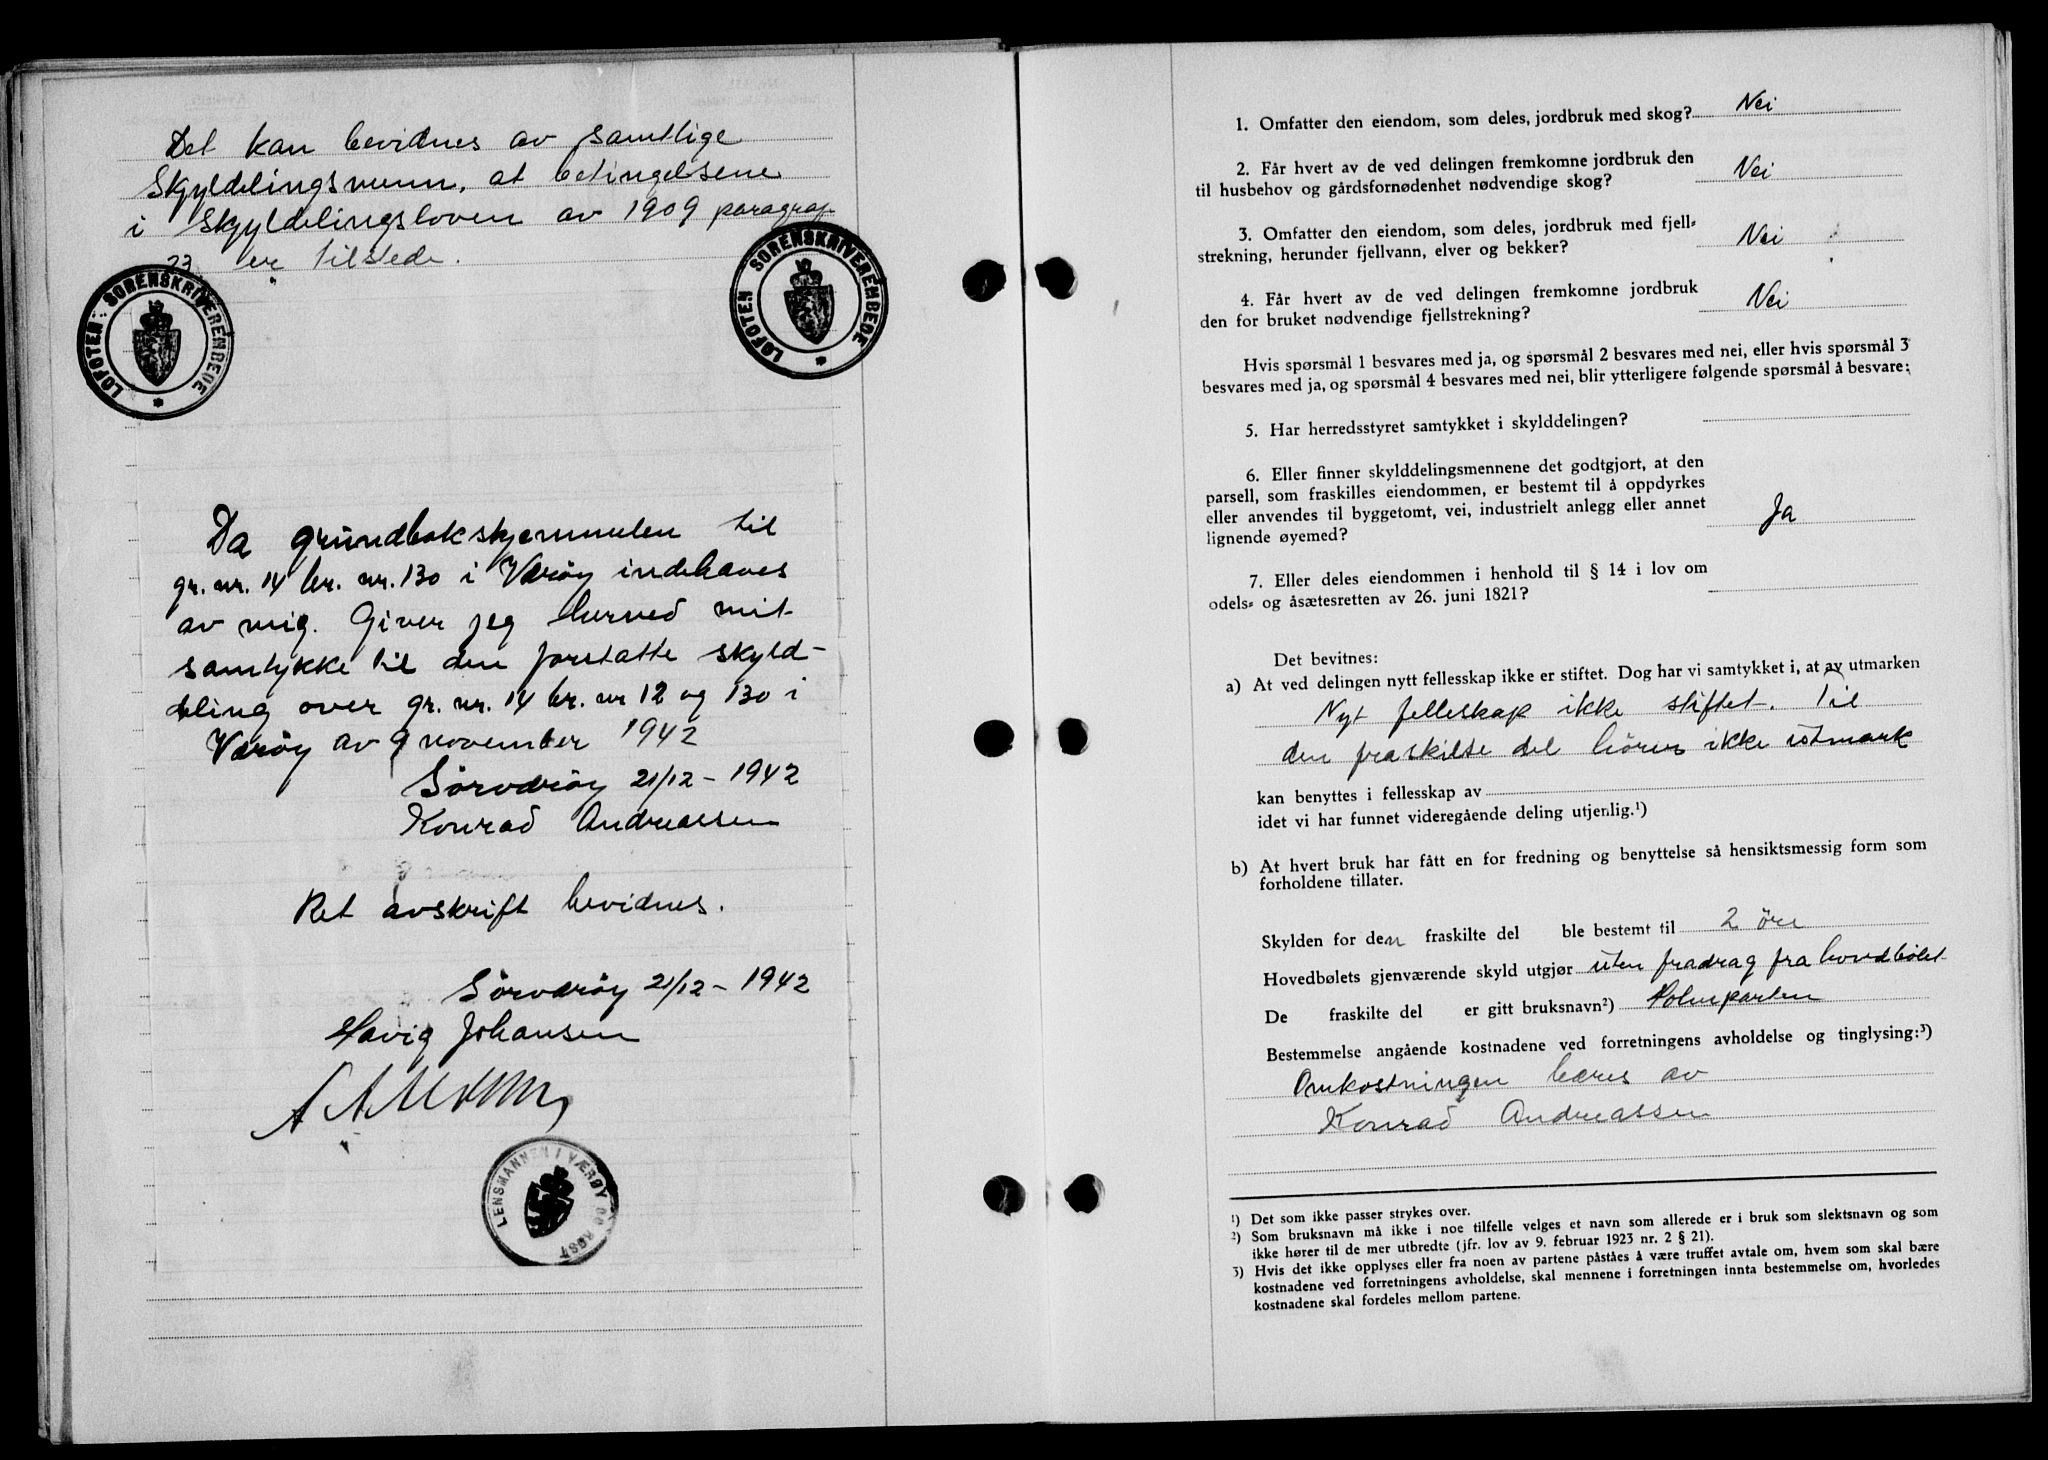 Det kan bevidnes av samtlige
Skyldelingsmenn, at betingelsene
i Skyldelingsloven av 1909 paragraf
23 er tilstede.
LOFOTEN SORENSKRIVEREMBEDE *
LOFOTEN SORENSKRIVEREMBEDE *
Da grundbokskjemmelen til
gr. nr. 14 br. nr. 130 i Værøy indehaves
av mig. Giver jeg herved mit
samtykke til den foretatte skyld-
deling over gr. nr. 14 br. nr 12 og 130 i
Værøy av 9 november 1942
Sørværøy 21/12 - 1942
Konrad Andreassen
Ret avskrift bevidnes.
Sørværøy 21/12 - 1942
Havig Johansen
LENSMANNEN I VÆRØY OG RØST
1. Omfatter den eiendom, som deles, jordbruk med skog? Nei
2. Får hvert av de ved delingen fremkomne jordbruk den
til husbehov og gårdsfornødenhet nødvendige skog? Nei
3. Omfatter den eiendom, som deles, jordbruk med fjell-
strekning, herunder fjellvann, elver og bekker? Nei
4. Får hvert av de ved delingen fremkomne jordbruk
den for bruket nødvendige fjellstrekning? Nei
Hvis spørsmål 1 besvares med ja, og spørsmål 2 besvares med nei, eller hvis spørsmål 3
besvares med ja, og spørsmål 4 besvares med nei, blir ytterligere følgende spørsmål å besvare:
5. Har herredsstyret samtykket i skylddelingen?
6. Eller finner skylddelingsmennene det godtgjort, at den
parsell, som fraskilles eiendommen, er bestemt til å oppdyrkes
eller anvendes til byggetomt, vei, industrielt anlegg eller annet
lignende øyemed? Ja
7. Eller deles eiendommen i henhold til § 14 i lov om
odels- og åsætesretten av 26. juni 1821?
Det bevitnes:
a) At ved delingen nytt fellesskap ikke er stiftet. Dog har vi samtykket i, at av utmarken
Nyt felleskap ikke stiftet. Til
den fraskilte del hører ikke utmark
kan benyttes i fellesskap av
idet vi har funnet videregående deling utjenlig.¹)
b) At hvert bruk har fått en for fredning og benyttelse så hensiktsmessig form som
forholdene tillater.
Skylden for den fraskilte del ble bestemt til 2 öre
Hovedbølets gjenværende skyld utgjør uten fradrag fra hovedbölet
De fraskilte del er gitt bruksnavn²)
Bestemmelse angående kostnadene ved forretningens avholdelse og tinglysing:³)
Omkostningen bæres av
Konrad Andreassen
¹) Det som ikke passer strykes over.
²) Som bruksnavn må ikke i noe tilfelle velges et navn som allerede er i bruk som slektsnavn og som
ikke hører til de mer utbredte (jfr. lov av 9. februar 1923 nr. 2 § 21).
³) Hvis det ikke opplyses eller fra noen av partene påståes å være truffet avtale om, hvem som skal bære
kostnadene ved forretningens avholdelse, skal mennene i forretningen innta bestemmelse om, hvorledes
kostnadene skal fordeles mellom partene.